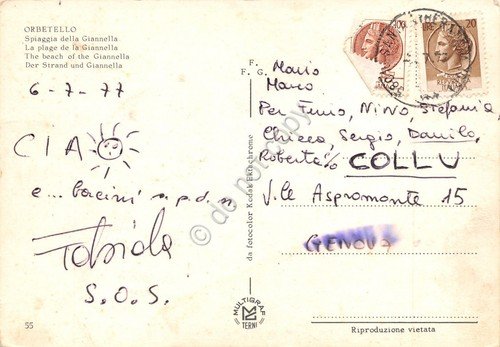 ORBETELLO
Spiaggia della Giannella
La plage de la Giannella
The beach of the Giannella
Der Strand und Giannella
6-7-77
CIAO
e... bacini a.p.d.n
Fabiola
S.O.S.
55
F. G.
da fotocolor Kodak Ektachrome
MULTIGRAF
TERNI
LIRE 20
Mario
Marco
Per Nino, Stefania,
Chicco, Sergio, Danilo,
Roberta% COLLU
V.le Aspromonte 15
GENOVA
Riproduzione vietata